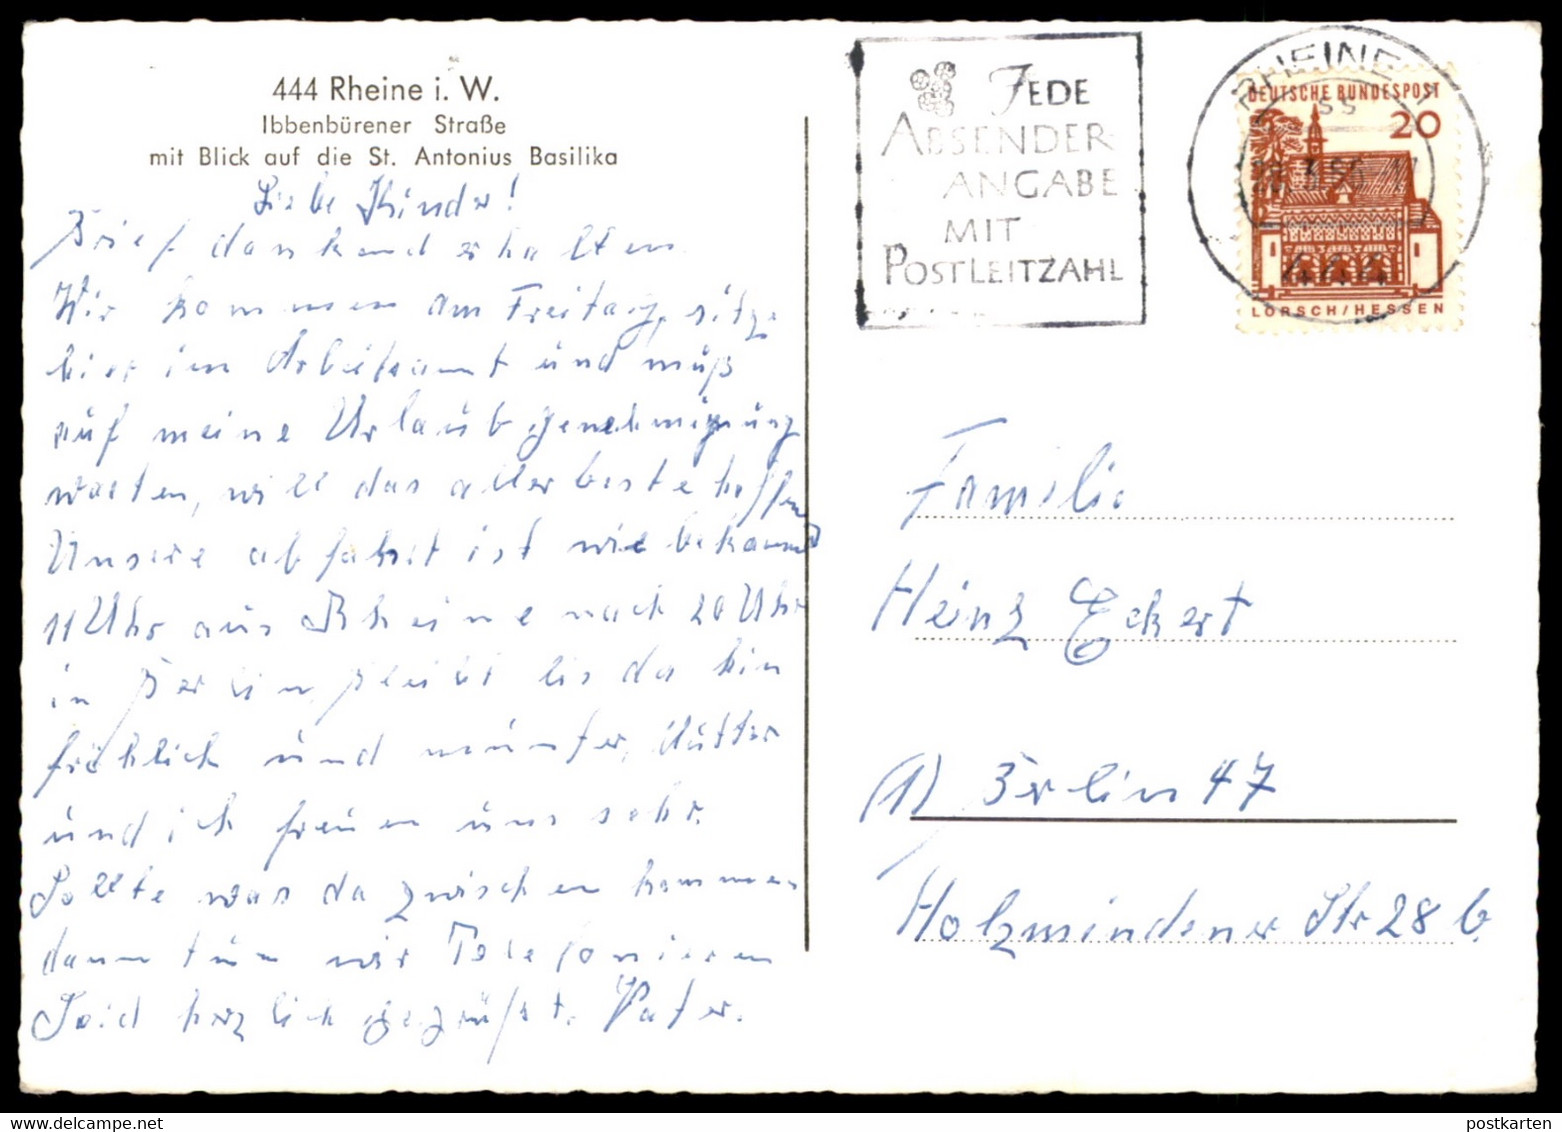 444 Rheine i. W.
Ibbenbürener Straße
mit Blick auf die St. Antonius Basilika
Liebe Kinder!
Brief dankend erhalten.
Wir kommen am Freitag, sitze
hier im Arbeitsamt und muß
auf meine Urlaubgenehmigung
warten, will das allerbeste hoffen
Unsere abfahrt ist wie bekannt
11 Uhr aus Rheine nach 20 Uhr
in Berlin, bleibt bis da hin
fröhlich und munter, Mutter
und ich freuen uns sehr.
Sollte was da zwischen kommen
dann tun wir Telefonieren
Seid herzlich gegrüßt. Vater.
JEDE
ABSENDER-
ANGABE
MIT
POSTLEITZAHL
RHEINE 1
ss
444
DEUTSCHE BUNDESPOST
20
LORSCH/HESSEN
Familie
Heinz Eckert
(1) Berlin 47
Holzmindener Str 28 b.
postkarten